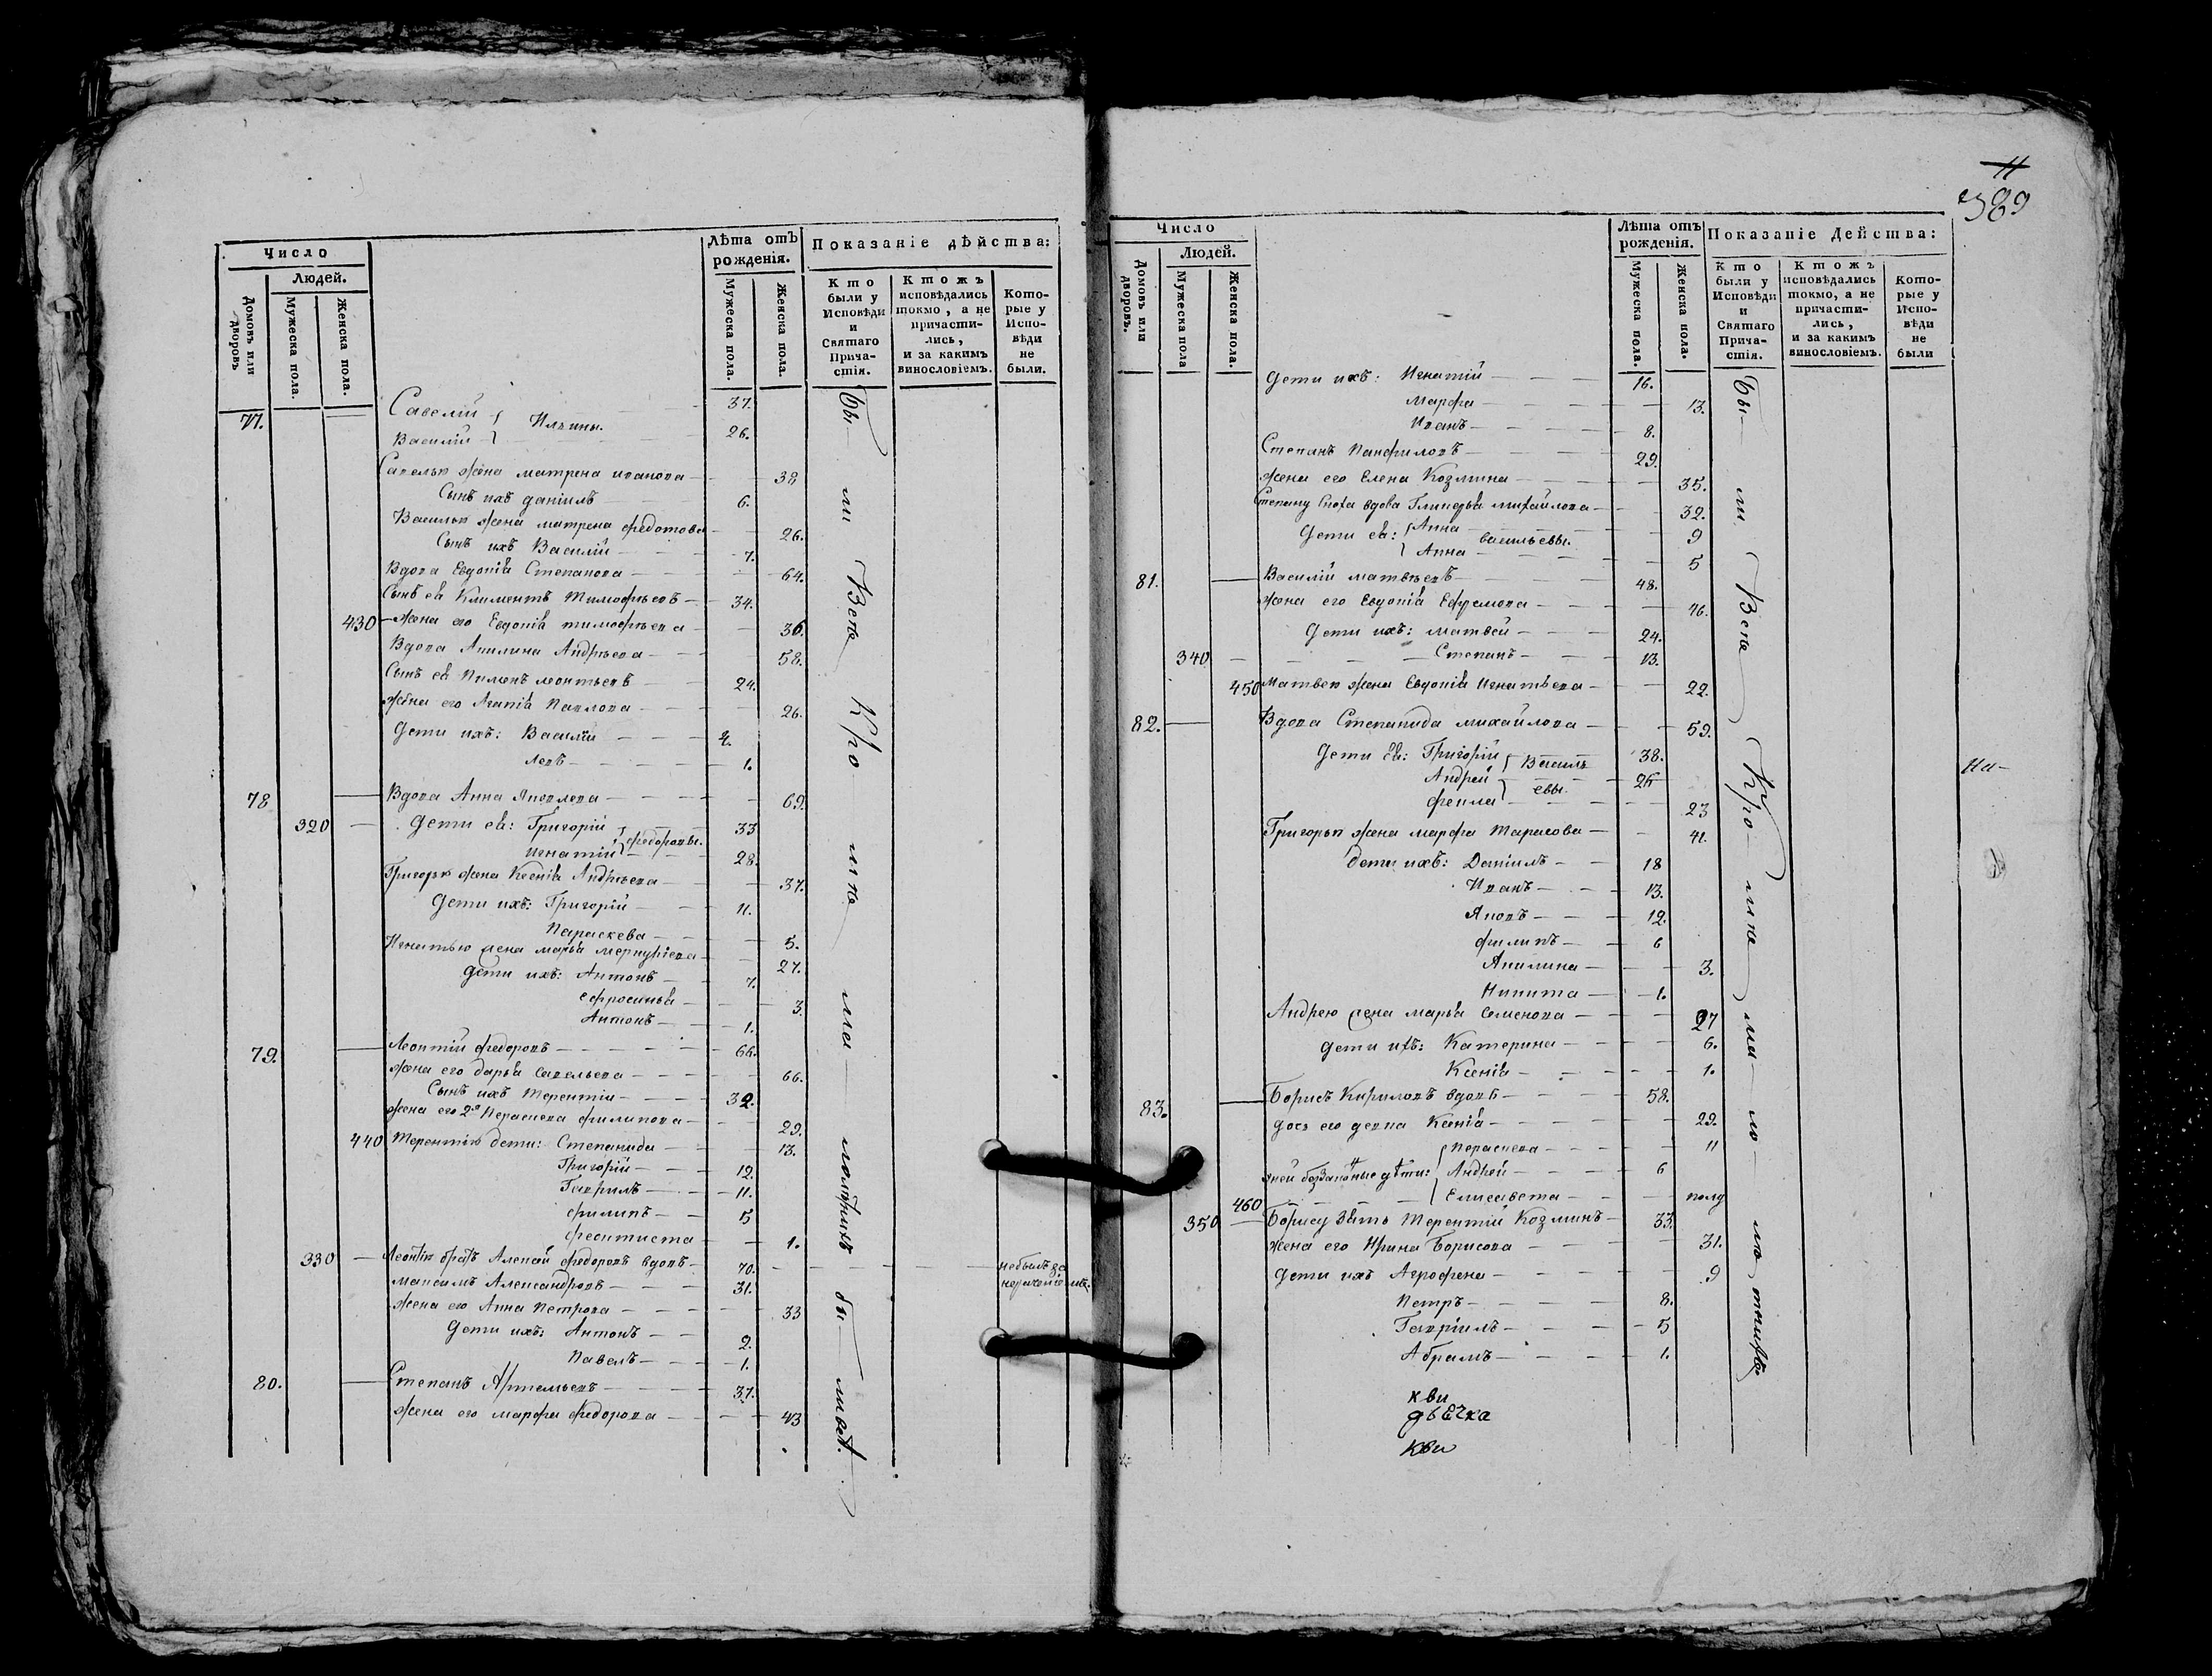 Число
Людей.
Домовъ или дворовъ
Мужеска пола.
Женска пола.
Лѣта отъ рожденія.
Мужеска пола.
Женска пола.
Показаніе дѣйства:
Кто были у Исповѣди и Святаго Причастія.
Ктожъ исповѣдались токмо, а не причастились, и за какимъ винословіемъ.
Которые у Исповѣди не были.
77. Савелій 37.
Ильины.
Василій 26.
Савельи жена матрена иванова 38
Сынъ ихъ даніилъ 6.
Васильи жена матрена федотова 26.
Сынъ ихъ Василій 7.
Вдова Евдокіѣ Степанова 64.
Сынъ еѣ Климентъ Тимофѣевъ 34.
430 жена его Евдокіѣ тимофѣева 36.
Вдова Акилина Андрѣева 58.
Сынъ еѣ Пименъ леонтьевъ 24.
жена его Агапіѣ Павлова 26.
Дети ихъ: Василій 4.
левъ 1.
78 Вдова Анна Яковлева 69.
320 Дети еѣ: Григорій 33
федоровы.
Игнатій 28.
Григорьи жена Ксеніѣ Андрѣева 37.
Дети ихъ: Григорій 11.
Параскева 5.
Игнатью жена марьѣ меркуріева 27.
Дети ихъ: Антонъ 7.
ефросиньѣ 3.
Антонъ 1.
79. Леонтій федоровъ 66.
жена его дарьѣ савельева 66.
Сынъ ихъ Терентіи 32.
жена его 2я Пераскева филипова 29.
440 Терентію дети: Степанида 13.
Григорій 12.
Гаврилъ 11.
филипъ 5
феоктиста 1.
330 Леонтію братъ Алексій федоровъ вдовъ 70. небылъ за
максимъ Александровъ 31.
жена его Анна Петрова 33
Дети ихъ: Антонъ 2.
Павелъ 1.
80. Степанъ Артемьевъ 37.
жена его марфа федорова 43
Бы ли Всѣ Кро мѣ ма лолѣтнихъ
11
389
Число
Людей.
Домовъ или дворовъ.
Мужеска пола
Женска пола.
Лѣта отъ рожденія.
Мужеска пола.
Женска пола.
Показаніе Действа:
Кто были у Исповѣди и Святаго Причастія.
Ктожъ исповѣдались токмо, а не причастились, и за какимъ винословіемъ.
Которые у Исповѣди не были
Дети ихъ: Игнатій 16.
Марфа 13.
Иванъ 8.
Степанъ Панфиловъ 29.
жена его Елена Козмина 35.
Степану Сноха вдова Гликерьѣ михайлова 32.
Дети еѣ: Анна 9
васильевы.
Анна 5
81. Василій матвѣевъ 48.
жена его Евдокіѣ Ефремова 46.
Дети ихъ: матвей 24.
340 Степанъ 13.
450 Матвею жена Евдокіѣ Игнатьева 22.
82. Вдова Степанида михайлова 59.
Дети еѣ: Григорій 38.
Василь
Андрей 26
евы.
фекла 23
Григорью жена марфа Тарасова 41.
дети ихъ: Даніилъ 18
Иванъ 13.
Яковъ 12.
филипъ 6
Акилина 3.
Никита 1.
Андрею жена марьѣ семенова 27
Дети ихъ: Катерина 6.
Ксеніѣ 1.
83. Борисъ Кириловъ вдовъ 58.
дочь его девка Ксеніѣ 29.
Пераскева 11
у ней беззаконные дѣти: Андрей 6
460 Елисавета полу
350 Борису зѣть Терентій Козминъ 33.
жена его Ирина Борисова 31.
Дети ихъ Агрофена 9
Петръ 8.
Гавріилъ 5
Абрамъ 1.
Бы ли Всѣ Кро мѣ ма ло
На-
кви
дьечка
кви